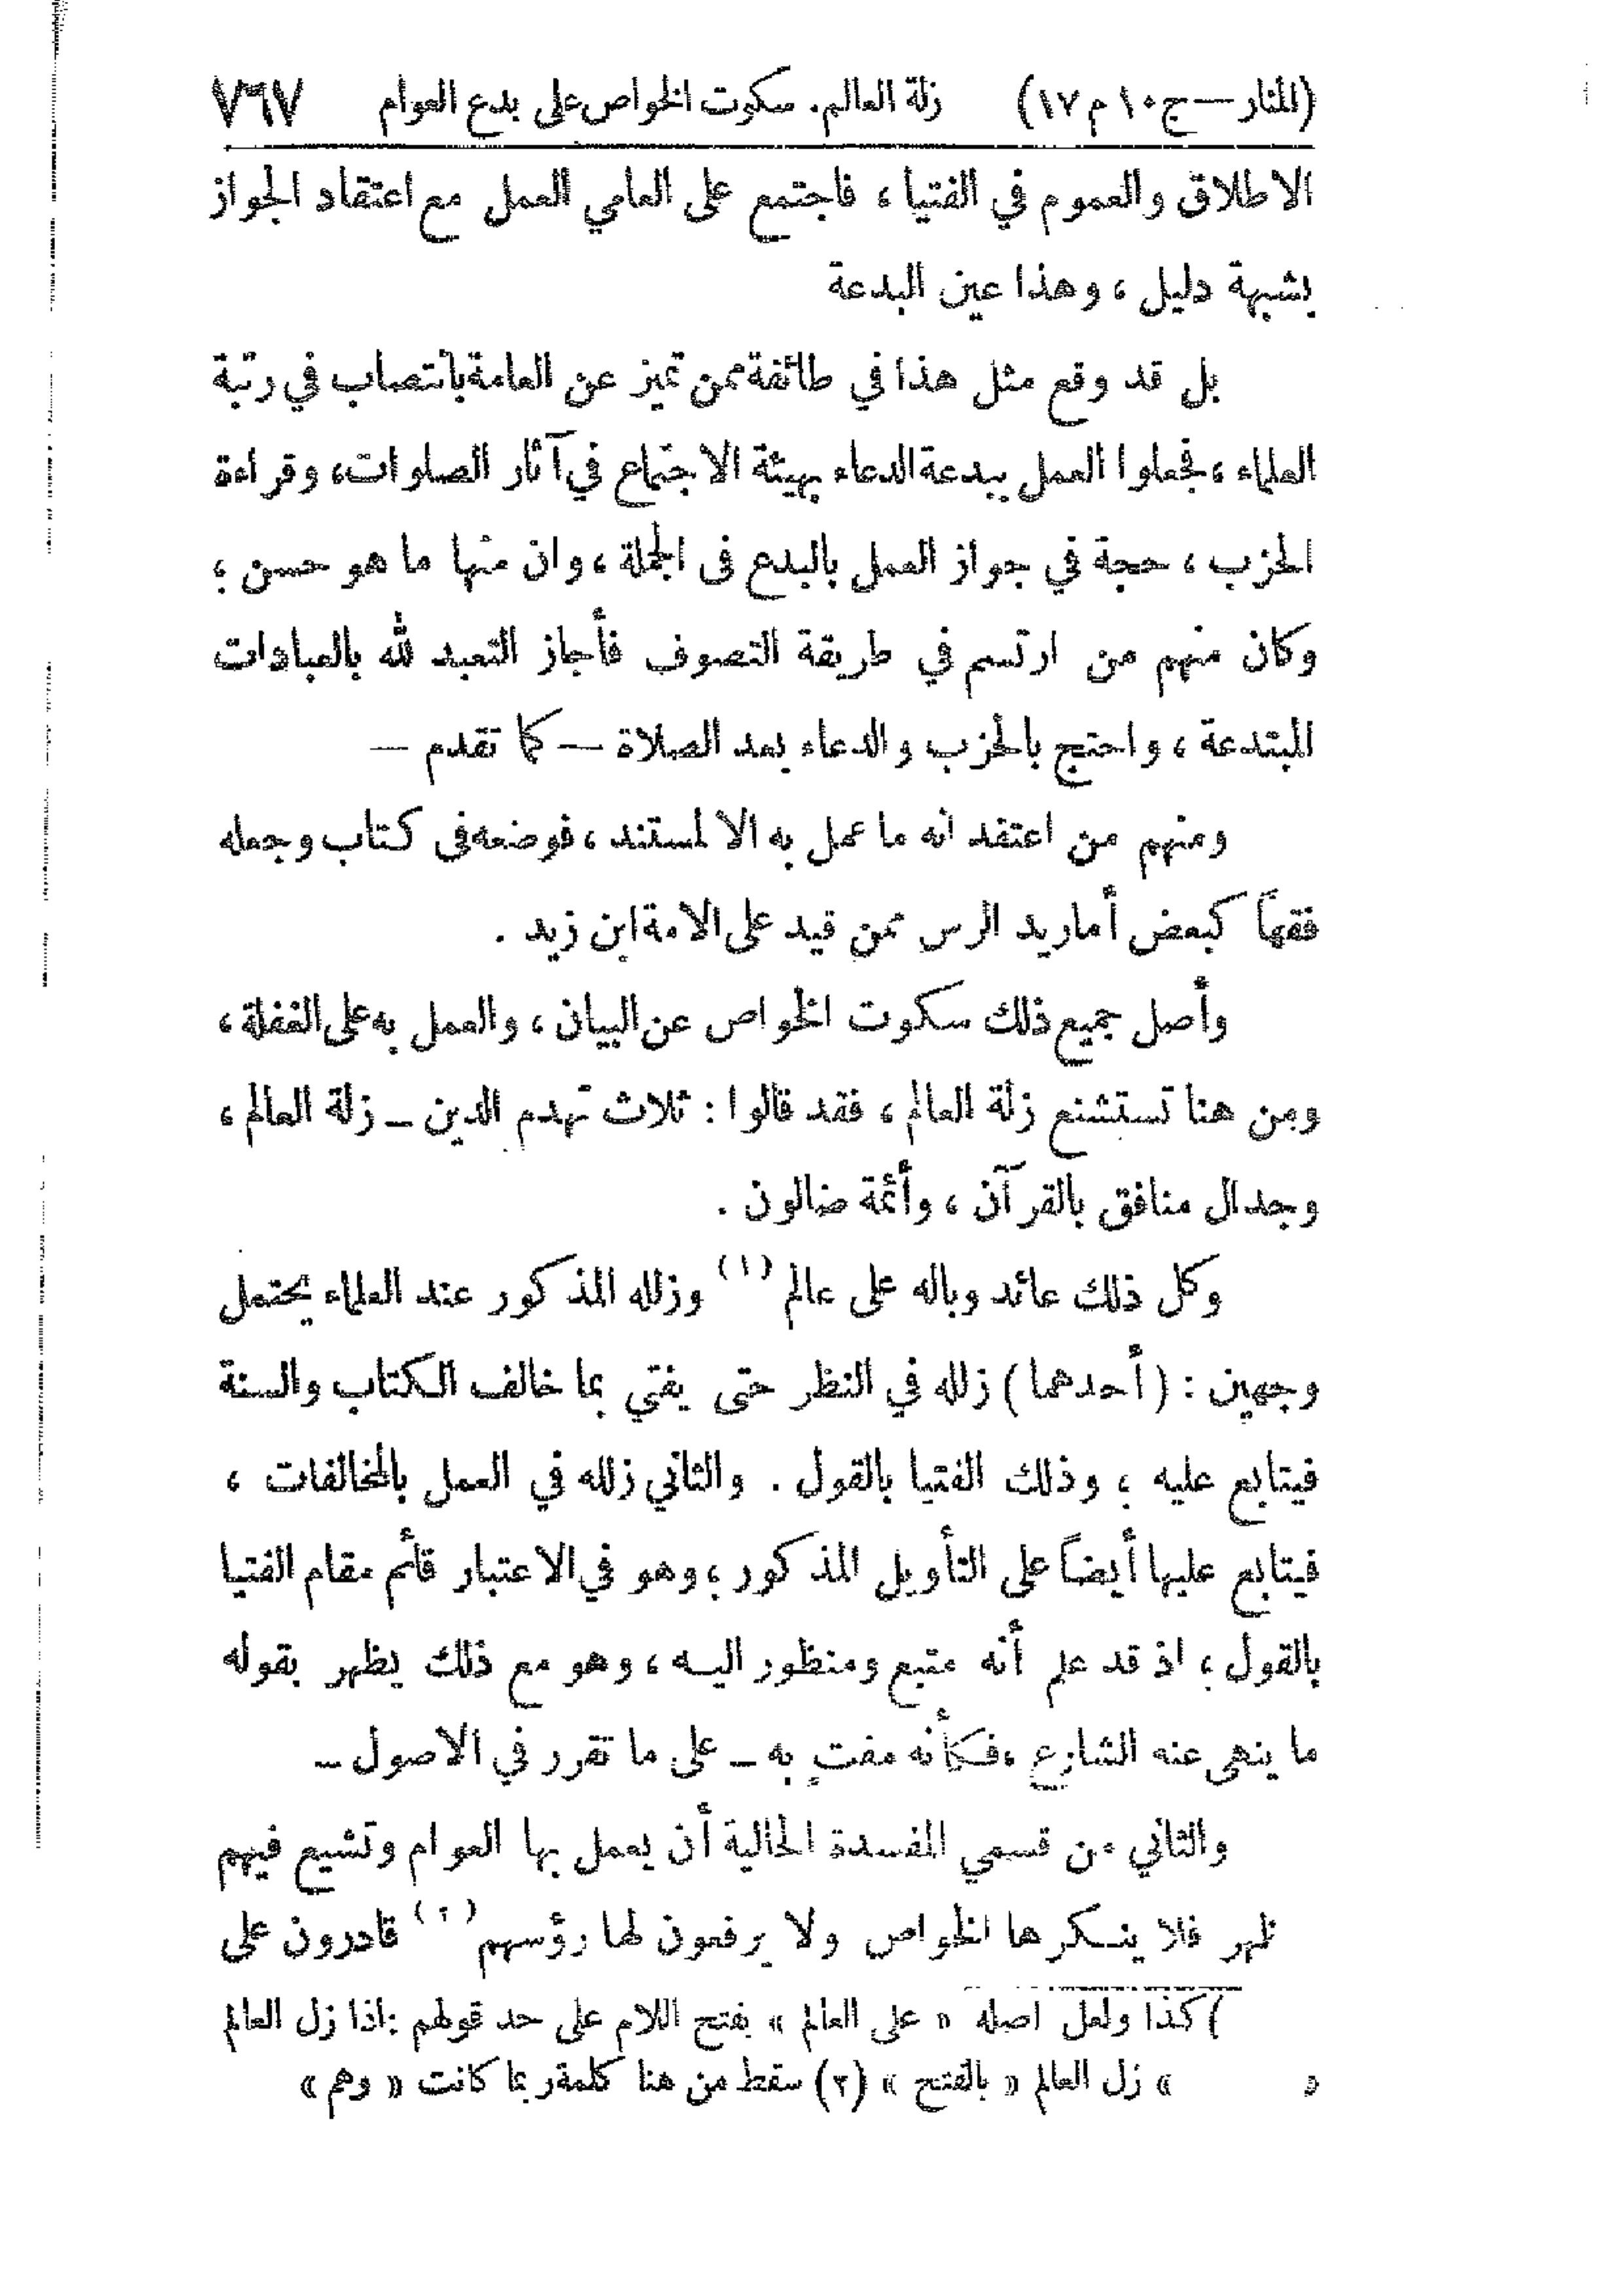 (المنار – ج ١٠ م ١٧) زلة العالم. سكوت الخواص على بدع العوام ٧٦٧
الاطلاق والعموم في الفتيا، فاجتمع على العامي العمل مع اعتقاد الجواز
بشبهة دليل، وهذا عين البدعة
بل قد وقع مثل هذا في طائفة ممن تميز عن العامة بانتصاب في رتبة
العلماء، فجعلوا العمل ببدعة الدعاء بهيئة الاجتماع في آثار الصلوات، وقراءة
الحزب، حجة في جواز العمل بالبدع فى الجملة، وان منها ما هو حسن؛
وكان منهم من ارتسم في طريقة التصوف فأجاز التعبد لله بالعبادات
المبتدعة، واحتج بالحزب والدعاء بعد الصلاة – كما تقدم –
ومنهم من اعتقد انه ما عمل به الا لمستند، فوضعه فى كتاب وجعله
فقهاً كبعض أماريد الرس ممن قيد على الامة ابن زيد .
وأصل جميع ذلك سكوت الخواص عن البيان، والعمل به على الغفلة،
ومن هنا تستشنع زلة العالم، فقد قالوا : ثلاث تهدم الدين – زلة العالم،
وجدال منافق بالقرآن، وأئمة ضالون .
وكل ذلك عائد وباله على عالم (١) وزلله المذكور عند العلماء يحتمل
وجهين : (أحدهما) زلله في النظر حتى يفتي بما خالف الكتاب والسنة
فيتابع عليه ؛ وذلك الفتيا بالقول . والثاني زلله في العمل بالمخالفات،
فيتابع عليها أيضاً على التأويل المذكور؛ وهو في الاعتبار قائم مقام الفتيا
بالقول؛ اذ قد علم أنه متبع ومنظور اليه، وهو مع ذلك يظهر بقوله
ما ينهى عنه الشارع، فكأنه مفتٍ به – على ما تقرر في الاصول –
والثاني من قسمي المفسدة الحالية أن يعمل بها العوام وتشيع فيهم
ظهر فلا ينكرها الخواص ولا يرفعون لها رؤسهم (٢) قادرون على
) كذا ولعل اصله « على العالم » بفتح اللام على حد قولهم : اذا زل العالم
» زل العالم « بالفتح » (٢) سقط من هنا كلمة ربما كانت « وهم »